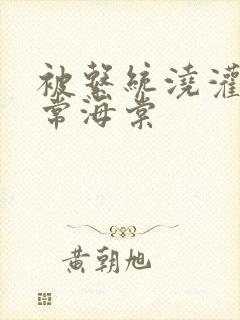 被繫統澆灌
常海棠
黃朝旭